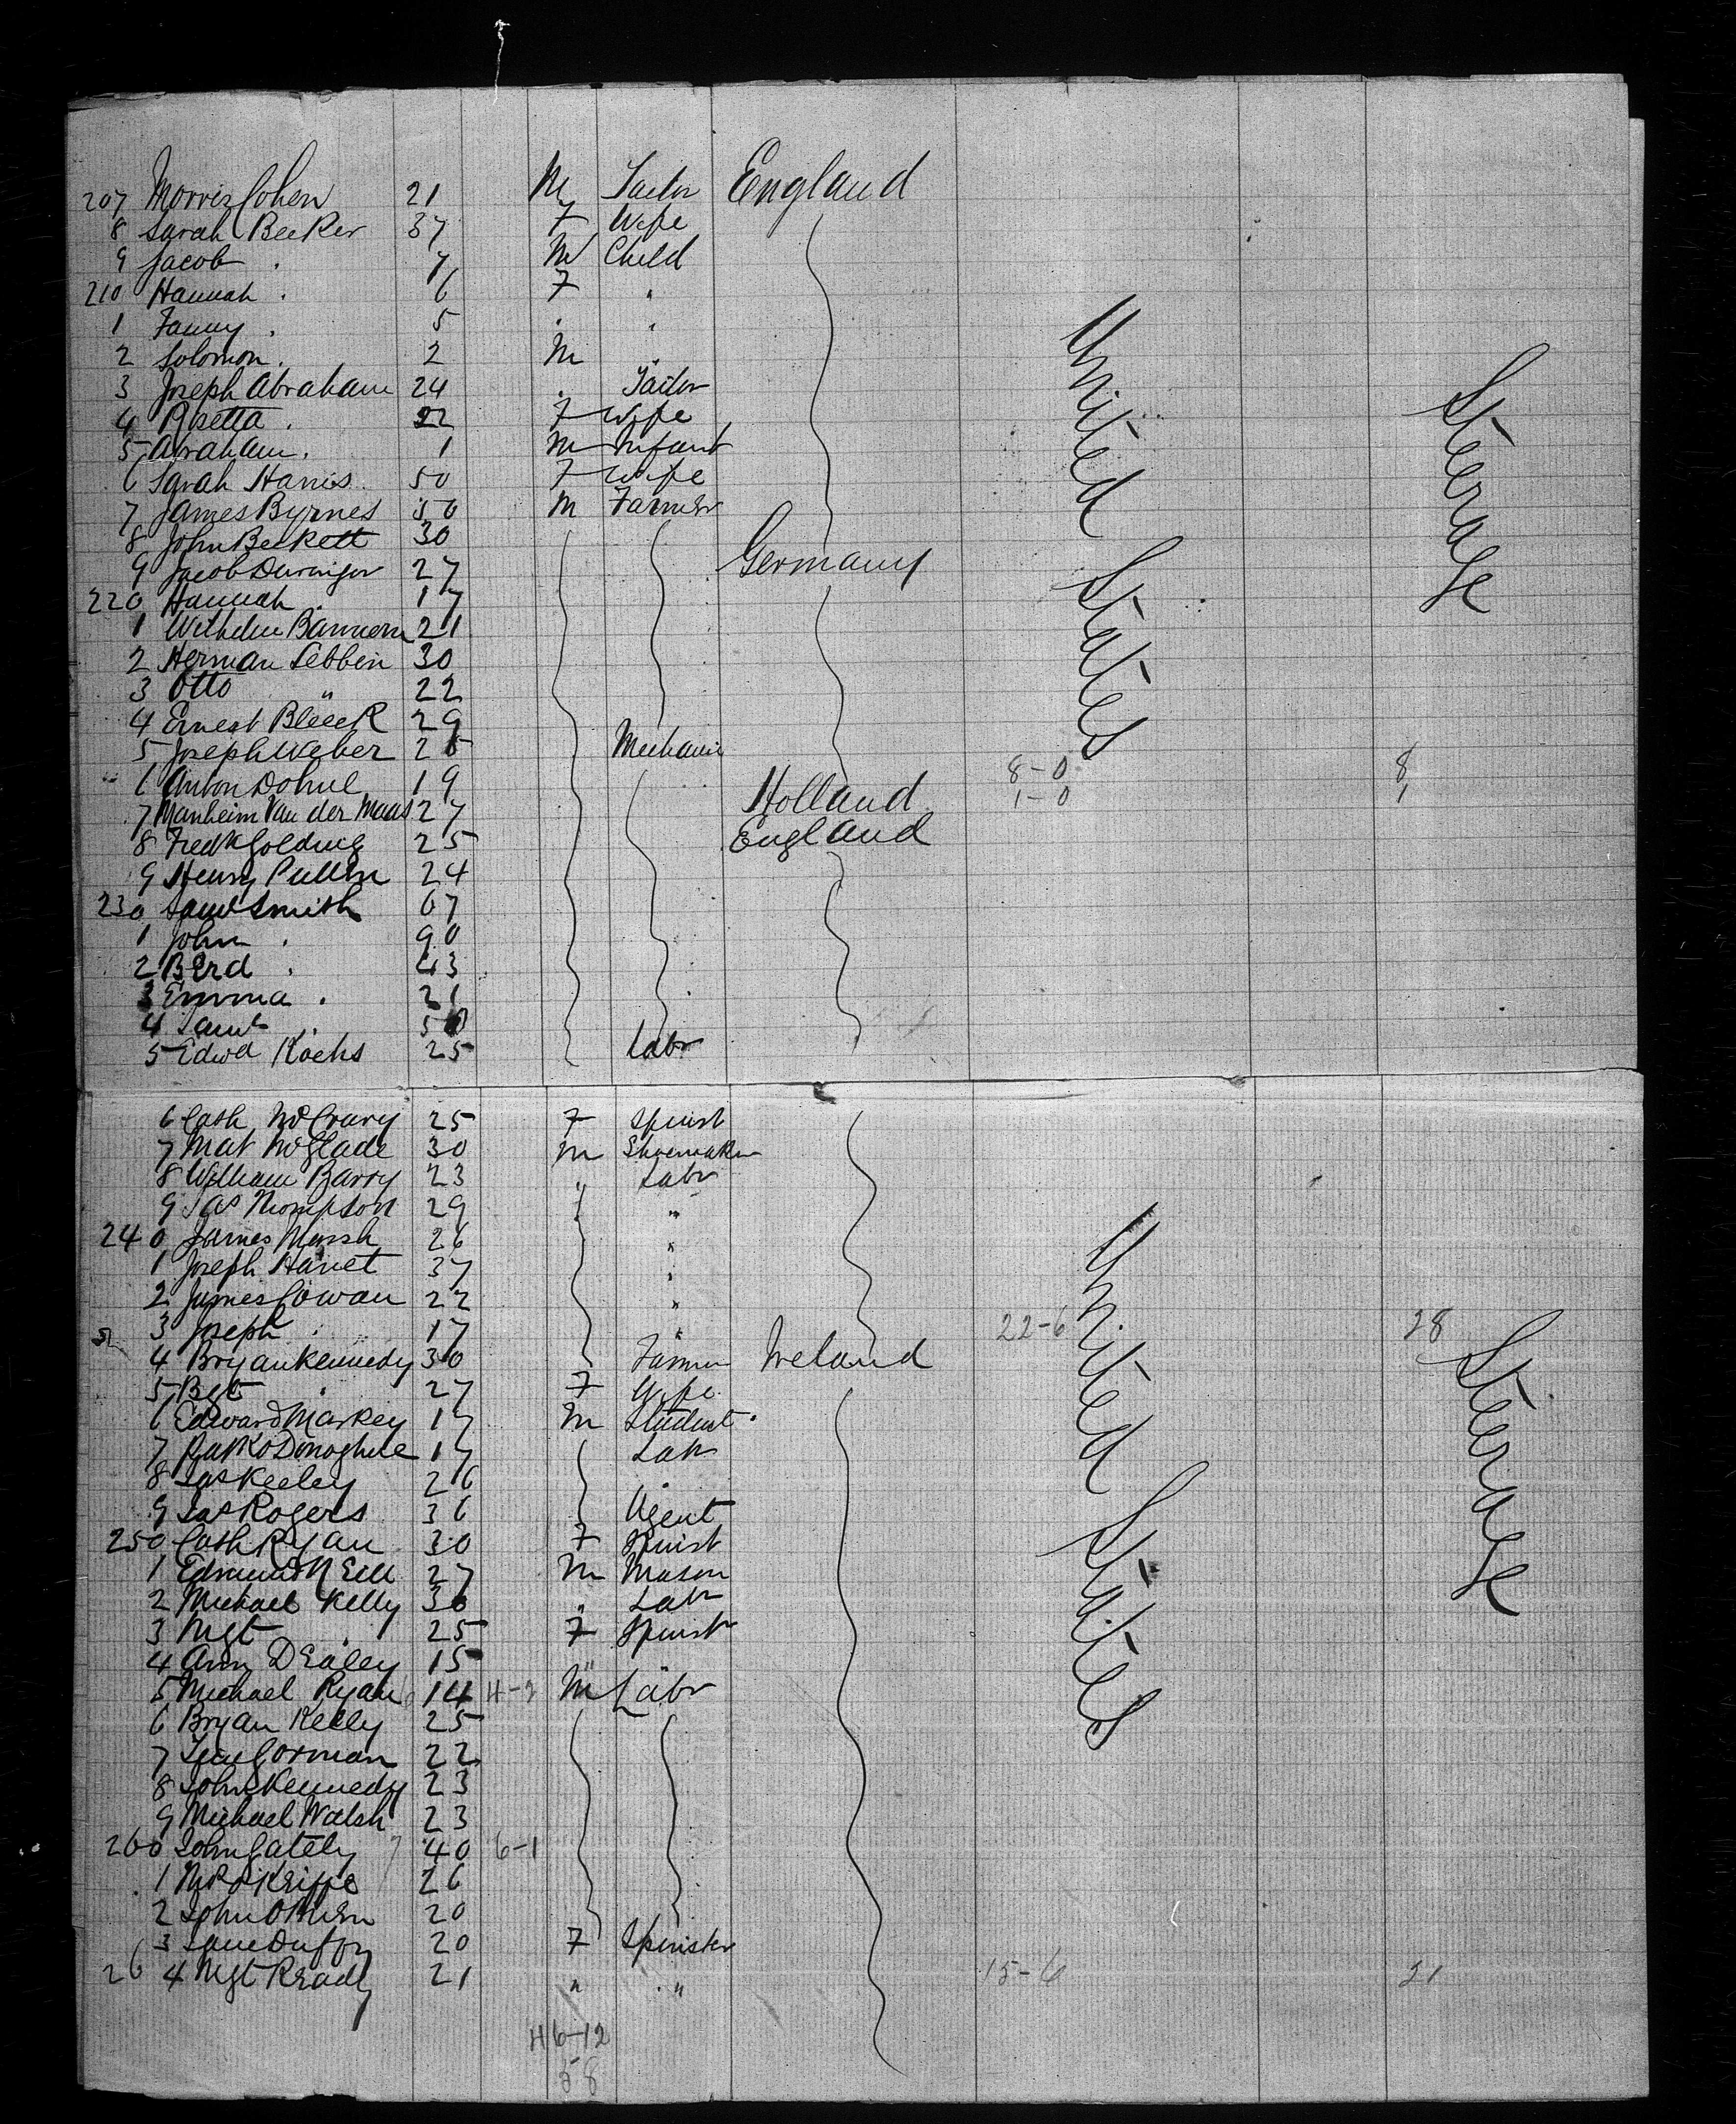 207 Morris Cohen 21 M Tailor England
8 Sarah Becker 37 F Wife
9 Jacob . 7 M Child
210 Hannah . 6 F "
1 Fanny . 5 " "
2 Solomon . 2 M "
3 Joseph Abraham 24 . Tailor
4 Rosetta . 22 F Wife
5 Abraham . 1 M Infant
6 Sarah Harris 50 F Wife
7 James Byrnes 50 M Farmer
8 John Beckett 30
9 Jacob 27 Germany
220 Hannah . 17
1 Wilhelm 21
2 Herman Lebbin 30
3 Otto " 22
4 Ernest Bleeck 29
5 Joseph Weber 25 Mechanic
6 Anton 19 8-0 8
7 Manheim Van der Maas 27 Holland 1-0 1
8 Fredk Golding 25 England
9 Henry Pullen 24
230 Saml Smith 67
1 John . 90
2 Berd . 43
3 Emma . 21
4 Saml . 50
5 Edwd Kochs 25 Labr
United States
Steerage
6 Cath McCrary 25 F Spinst
7 Mat McGlade 30 M Shoemaker
8 William Barry 23 " Labr
9 Jas Thompson 29 "
240 James Marsh 26 "
1 Joseph Hanet 37 "
2 James Cowan 22 "
3 Joseph . 17 " 22-6 28
4 Bryan Kennedy 30 Farmer Ireland
5 Bgt . 27 F Wife
6 Edward Markey 17 M Student
7 Patk O Donoghue 17 Labr
8 Jas Keeley 26 "
9 Jas Rogers 36 Agent
250 Cath Ryan 30 F Spinst
1 Edmund Neill 27 M Mason
2 Michael Kelly 30 " Labr
3 Mgt . 25 F Spinst
4 Ann Dealey 15 "
5 Michael Ryan 14 M Labr
6 Bryan Kelly 25
7 Gorman 22
8 John Kennedy 23
9 Michael Walsh 23
260 John Gately 40 6-1
1 26
2 John O Brien 20
3 Jane Duffy 20 F Spinster
264 Mgt Ready 21 " " 15-6 21
United States
Steerage
46-12
58